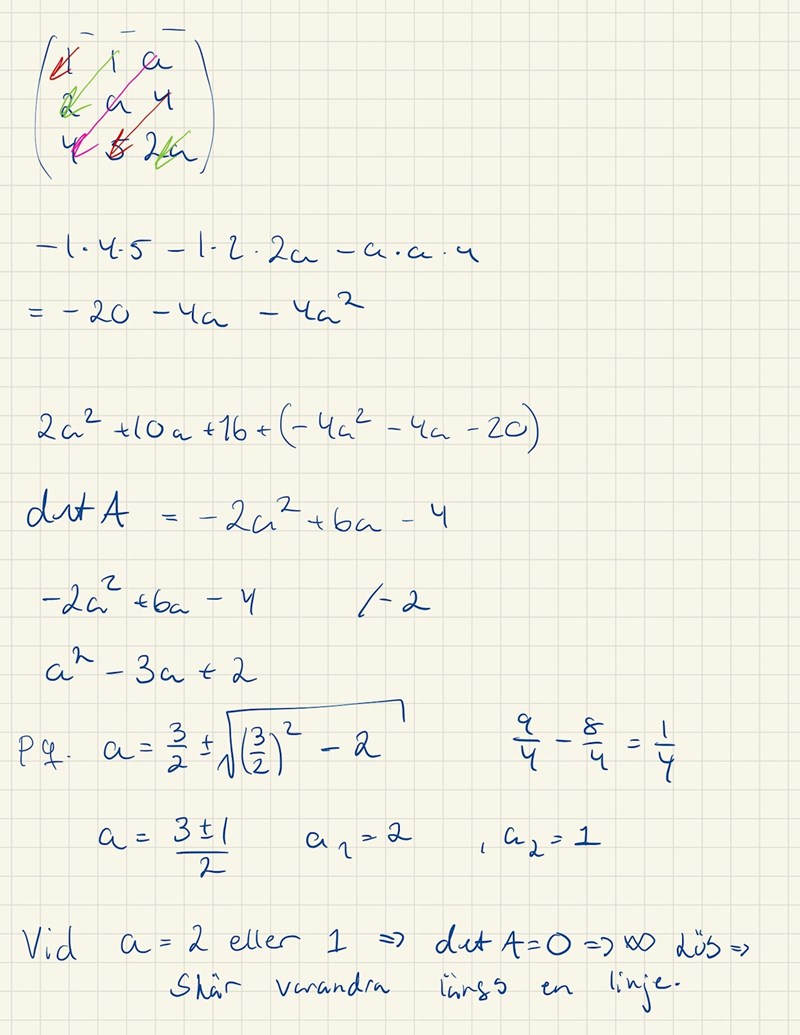 1 1 a
2 a 4
4 5 2a
-1·4·5 - 1·2·2a - a·a·4
= -20 - 4a - 4a²
2a² + 10a + 16 + (-4a² - 4a - 20)
det A = -2a² + 6a - 4
-2a² + 6a - 4 /-2
a² - 3a + 2
Pq. a = 3/2 ± √((3/2)² - 2) 9/4 - 8/4 = 1/4
a = (3 ± 1)/2 a₁ = 2 , a₂ = 1
Vid a = 2 eller 1 => det A = 0 => ∞ Lös =>
Skär varandra längs en linje.